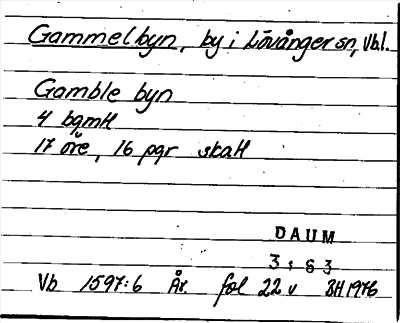 Gammelbyn, by i Lövånger sn, Vbl.
Gamble byn
4 bgmH
17 öre, 16 pgr skatt
DAUM
3:63
Vb 1597:6 År. fol 22 v BH 1976